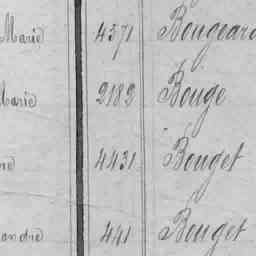 Marie 4371 Bougeard
Marie 2182 Bouge
4431 Bouget
andre 441 Bouget